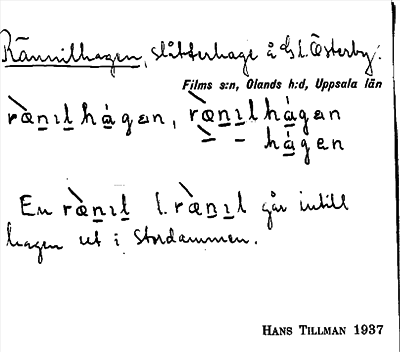 Rännilhagen, slåtterhage å Gl. Österby.
Films s:n, Olands h:d, Uppsala län
ræ̀nɪl hágɛn, ræ̀nɪl hágɛn
– – hágɛn
En ræ̀nɪl l. ræ̀nɪl går intill
hagen ut i Stordammen.
HANS TILLMAN 1937